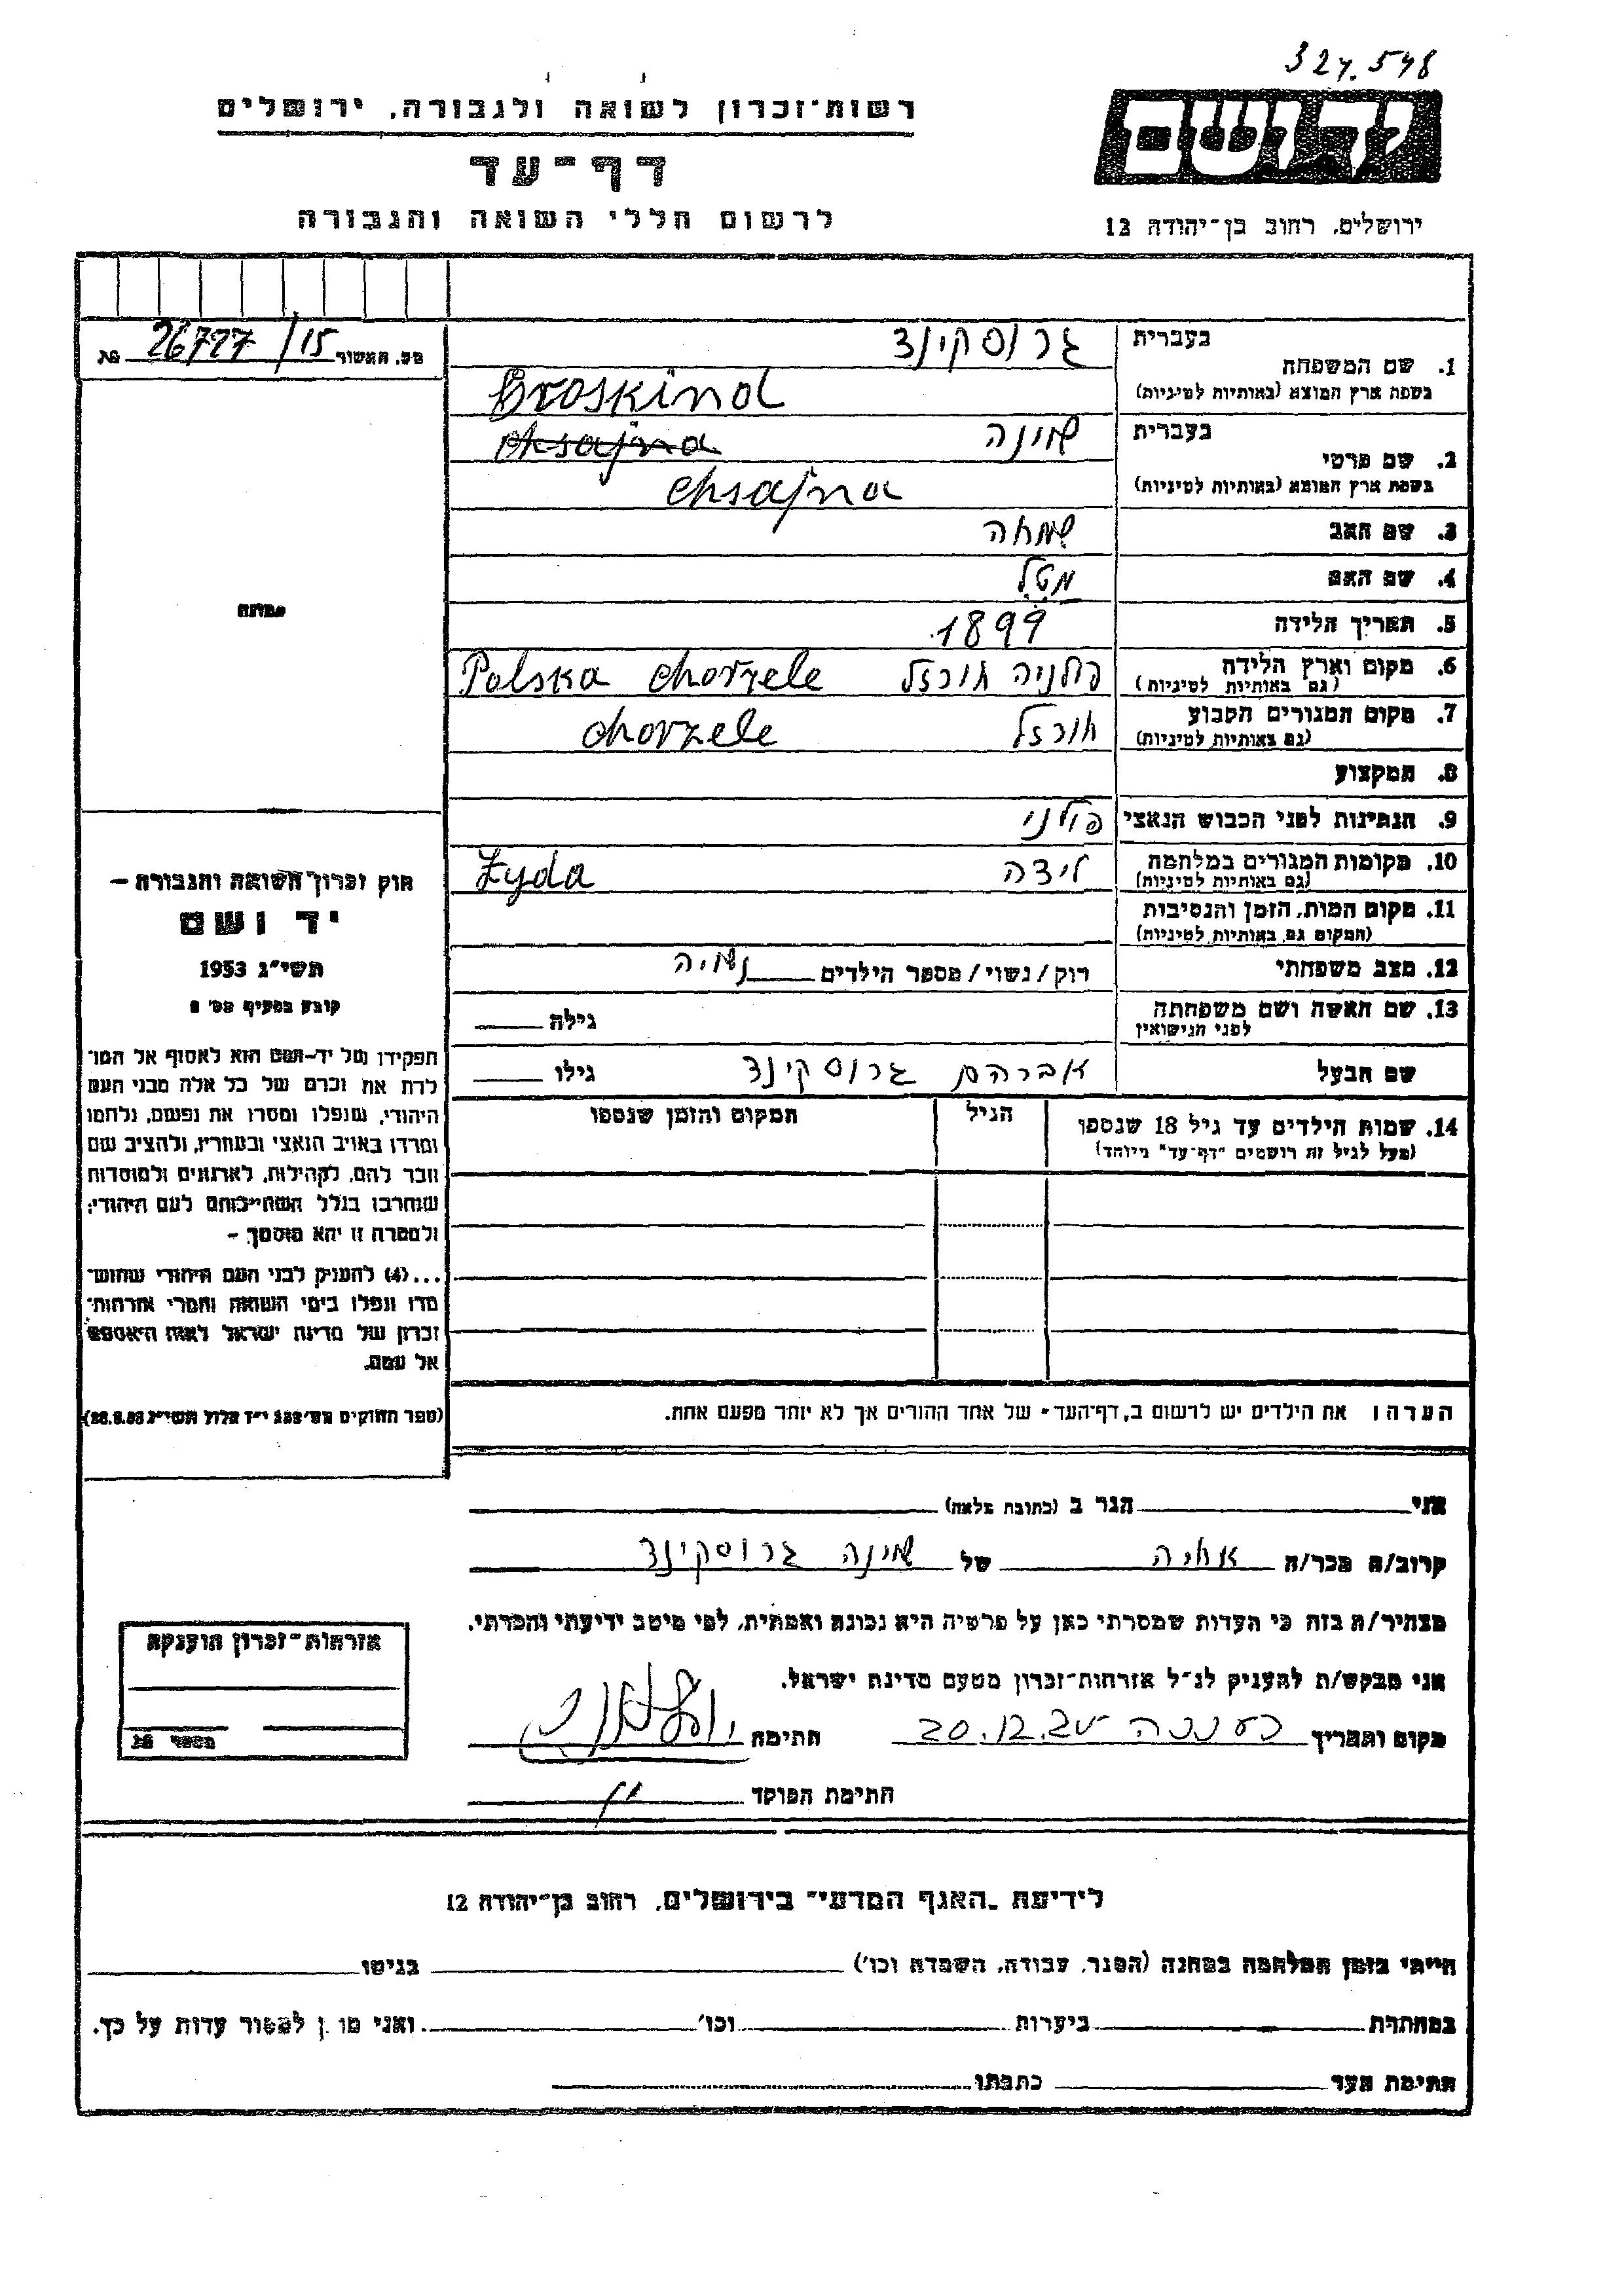 324.548
רשות־זכרון לשואה ולגבורה, ירושלים
יד ושם
דף־עד
לרשום חללי השואה והגבורה
ירושלים, רחוב בן־יהודה 12
מס. האשור 26727/15
1. שם המשפחה
בעברית גרוסקינד
בשפת ארץ המוצא (באותיות לטיניות) Groskind
2. שם פרטי
בעברית שיינה
chsajna
בשפת ארץ המוצא (באותיות לטיניות) chsajna
3. שם האב שמחה
4. שם האם מטל
5. תאריך הלידה 1899
6. מקום וארץ הלידה פולניה חורזל Polska chorzele
(גם באותיות לטיניות)
7. מקום המגורים הקבוע חורזל chorzele
(גם באותיות לטיניות)
8. המקצוע
9. הנתינות לפני הכבוש הנאצי פולני
10. מקומות המגורים במלחמה לידה Łyda
(גם באותיות לטיניות)
11. מקום המות, הזמן והנסיבות
(המקום גם באותיות לטיניות)
12. מצב משפחתי רוק/נשוי/מספר הילדים נשויה
13. שם האשה ושם משפחתה גילה
לפני הנישואין
שם הבעל אברהם גרוסקינד גילו
14. שמות הילדים עד גיל 18 שנספו הגיל המקום והזמן שנספו
(מעל לגיל זה רושמים "דף־עד" מיוחד)
הערה: את הילדים יש לרשום ב„דף־העד״ של אחד ההורים אך לא יותר מפעם אחת.
תמונה
חוק זכרון השואה והגבורה –
יד ושם
תשי״ג 1953
קובע בסעיף מס׳ 2
תפקידו של יד-ושם הוא לאסוף אל המו־
לדת את זכרם של כל אלה מבני העם
היהודי, שנפלו ומסרו את נפשם, נלחמו
ומרדו באויב הנאצי ובעוזריו, ולהציב שם
וזכר להם, לקהילות, לארגונים ולמוסדות
שנחרבו בגלל השתייכותם לעם היהודי;
ולמטרה זו יהא מוסמך –
...(4) להעניק לבני העם היהודי שהוש־
מדו ונפלו בימי השואה והמרי אזרחות־
זכרון של מדינת ישראל לאות היאספם
אל עמם.
(ספר החוקים מס׳ 132 י״ז אלול תשי״ג 28.8.53)
אני הגר ב (כתובת מלאה)
קרוב/ה מכר/ה אחיה של שיינה גרוסקינד
מצהיר/ה בזה כי העדות שמסרתי כאן על פרטיה היא נכונה ואמתית, לפי מיטב ידיעתי והכרתי.
אני מבקש/ת להעניק לנ״ל אזרחות־זכרון מטעם מדינת ישראל.
מקום ותאריך רעננה חתימה
חתימת הפוקד
אזרחות־זכרון הוענקה
מספר
לידיעת „האגף המדעי״ בירושלים, רחוב בן־יהודה 12
הייתי בזמן המלחמה במחנה (הסגר, עבודה, השמדה וכו׳) בגיטו
במחתרת ביערות וכו׳ ואני מוכן למסור עדות על כך.
חתימת העד כתבתו